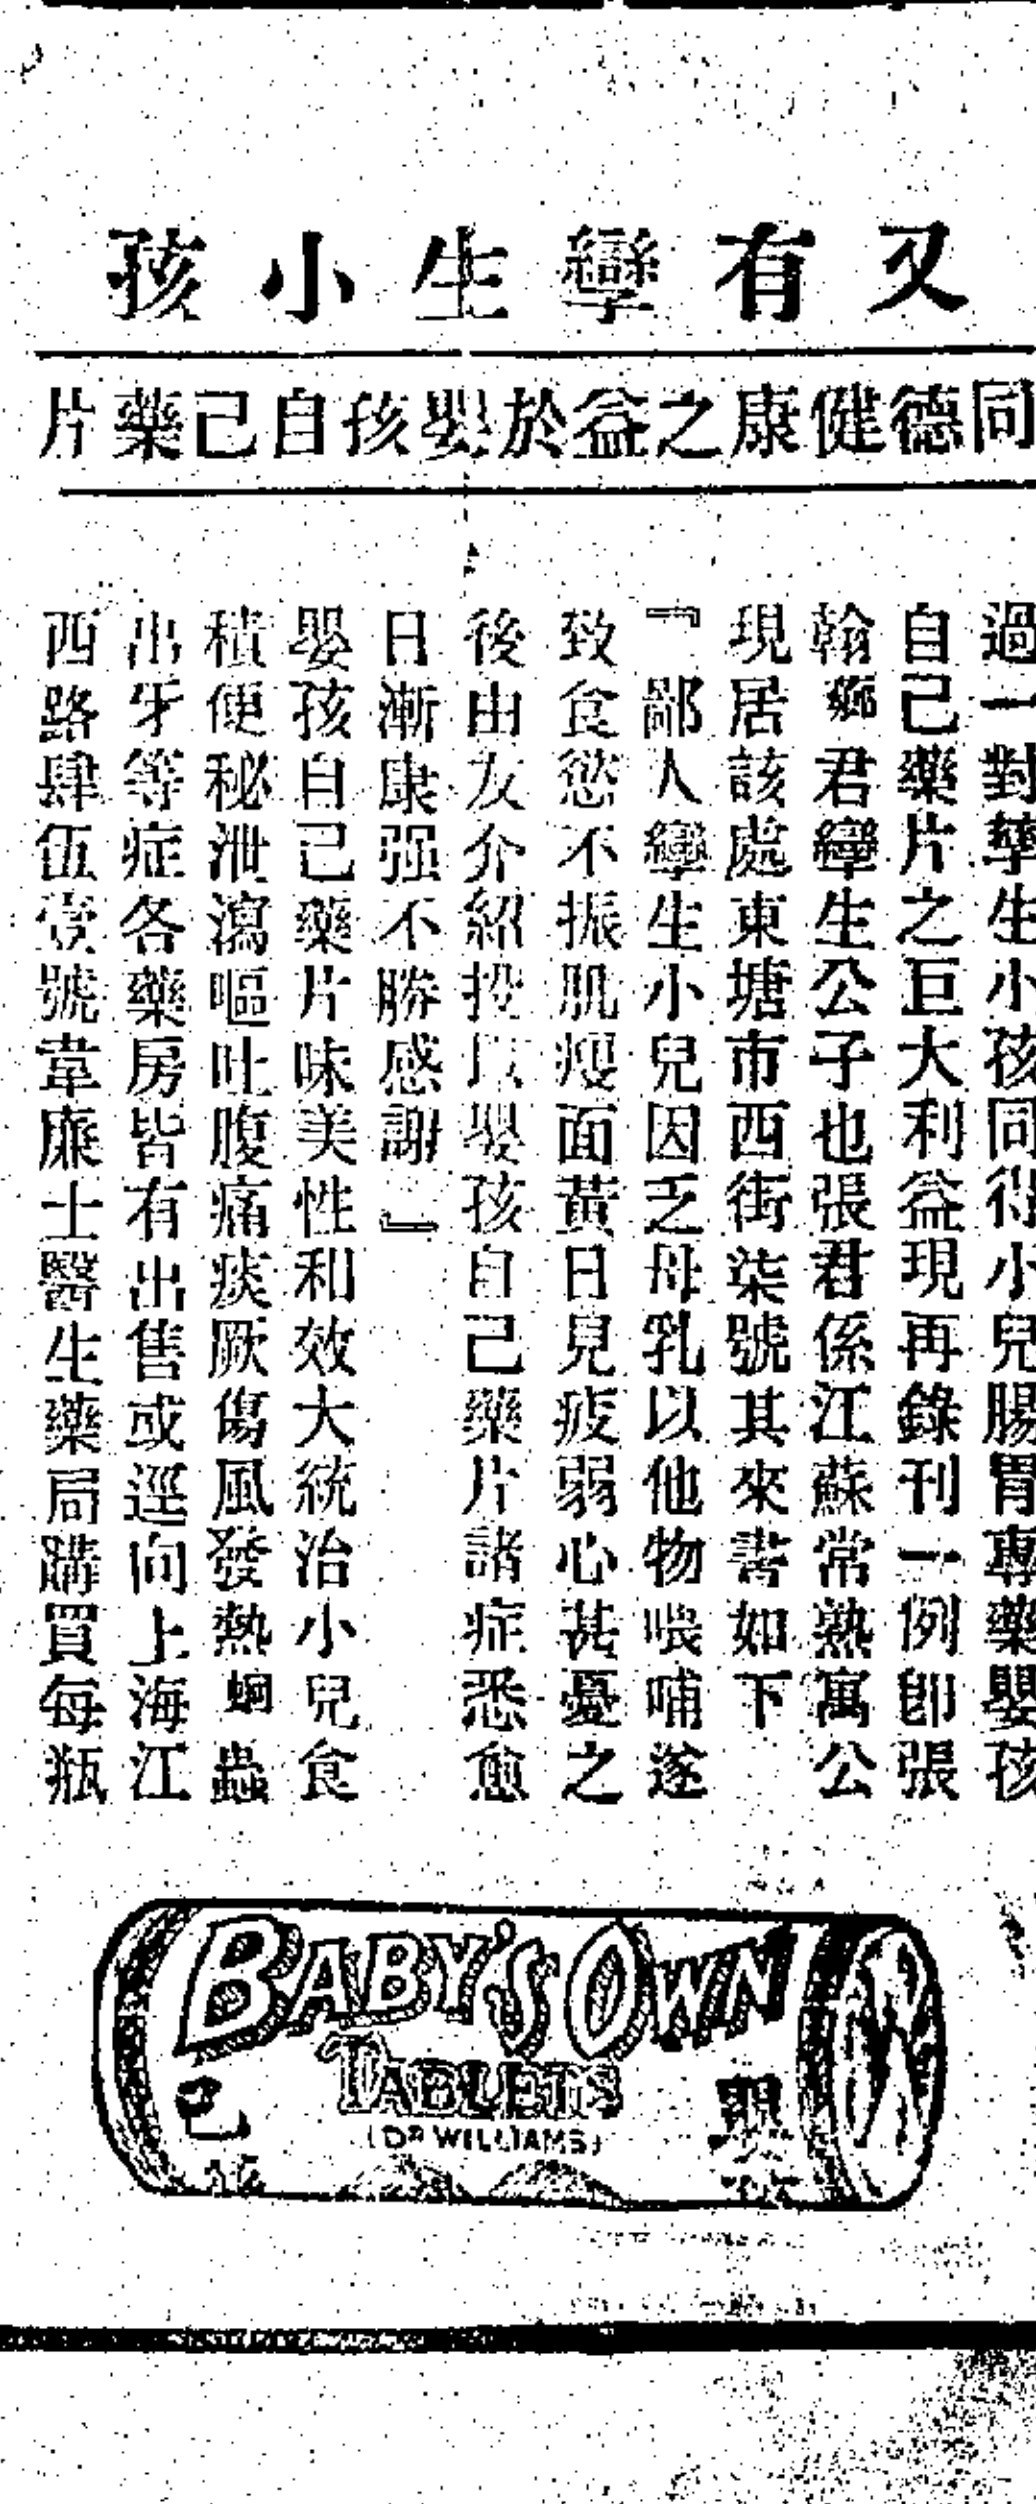 又有孿生小孩
同德健康之益於嬰孩自己藥片
過一對孿生小孩同得小兒腸胃專藥嬰孩
自己藥片之巨大利益現再錄刊一例卽張
翰鄉君孿生公子也張君係江蘇常熟寓公
現居該處東塘市西街柒號其來書如下
『鄙人孿生小兒因乏母乳以他物喂哺遂
致食慾不振肌瘦面黃日見疲弱心甚憂之
後由友介紹投以嬰孩自己藥片諸症悉愈
日漸康强不勝感謝』
嬰孩自己藥片味美性和效大統治小兒食
積便秘泄瀉嘔吐腹痛痰厥傷風發熱蛔蟲
出牙等症各藥房皆有出售或逕向上海江
西路肆伍壹號韋廉士醫生藥局購買每瓶
BABY'S OWN
TABLETS
(DR WILLIAMS)
己 嬰